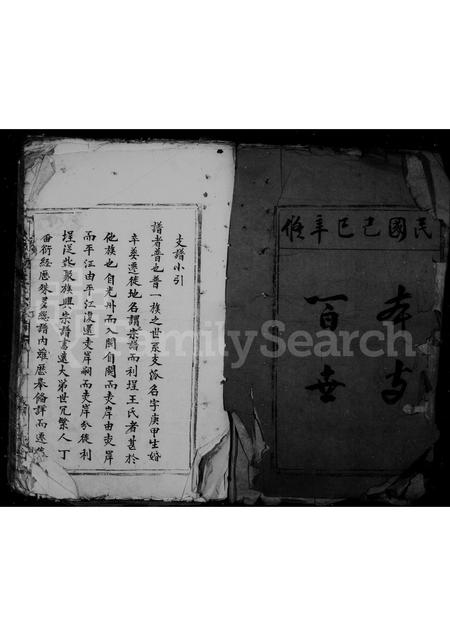 民國己巳年修
本支
百世
支譜小引
譜者普也普一族之世系支派名字庚甲生婚
卒葬遷徙地名謂崇譜而利埕王氏者甚於
他族也自光州而入閩自閩而夷岸由夷岸
而平江由平江復還夷岸嗣而夷岸分徙利
埕從此聚族興崇譜書遠大第世冗繁人丁
番衍經歷
總譜內雖歷
詳而遷
FamilySearch